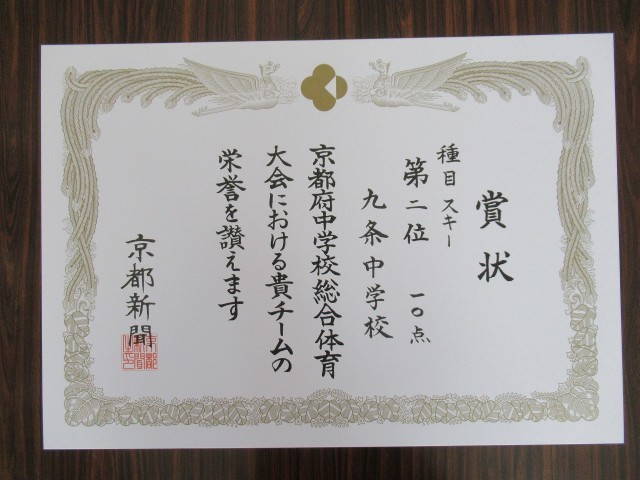 賞状
種目 スキー
第二位 一〇点
九条中学校
京都府中学校総合体育
大会における貴チームの
栄誉を讃えます
京都新聞